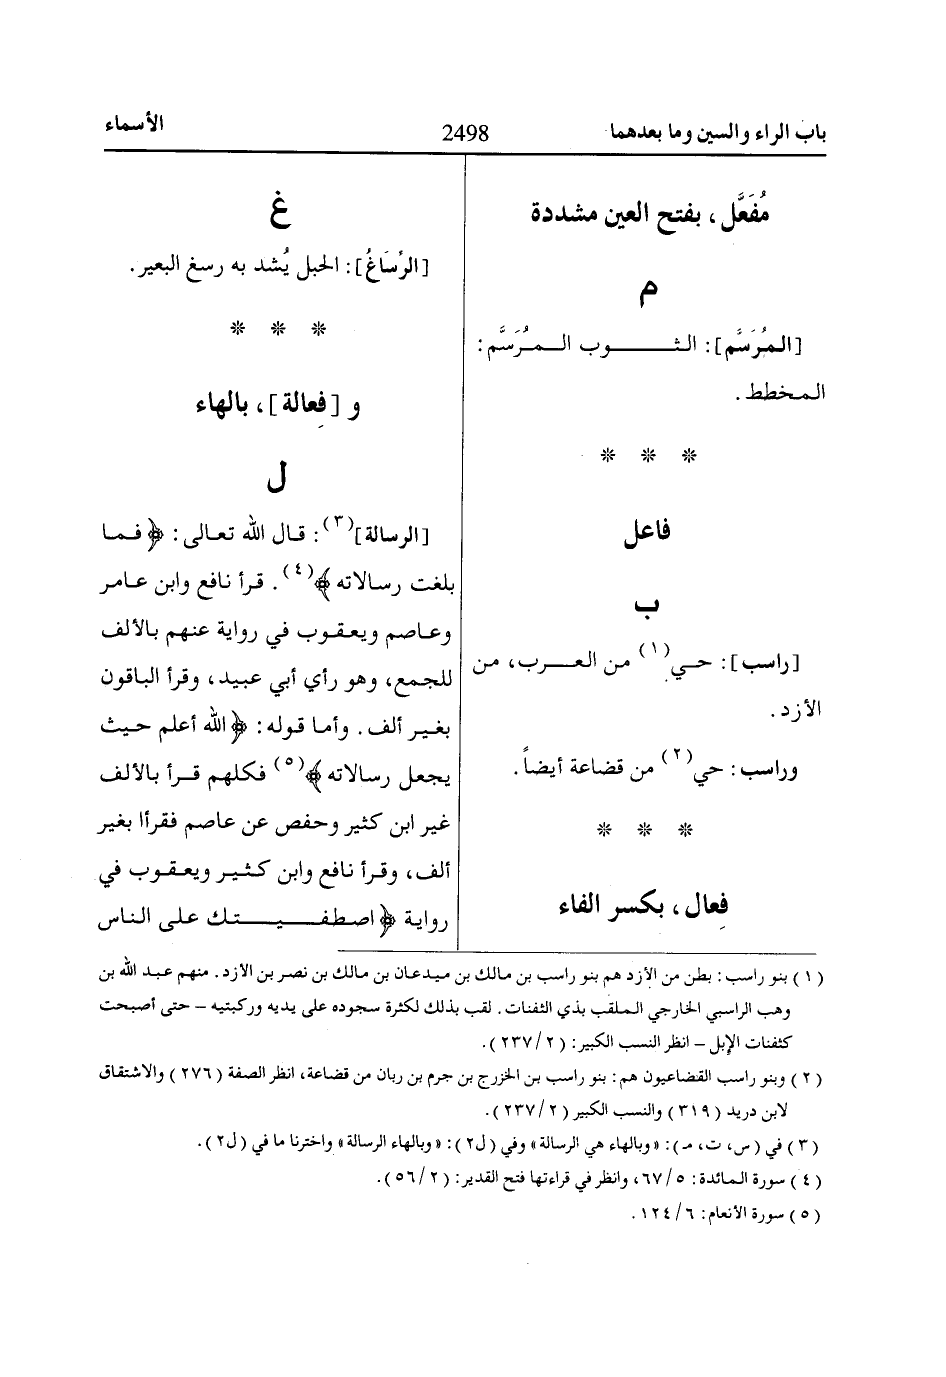 باب الراء والسين وما بعدهما
2498
الأسماء
مُفَعَّل، بفتح العين مشددة
م
[المُرَسَّم]: الثوب المُرَسَّم:
المخطط.
* * *
فاعل
ب
[راسب]: حي(١) من العرب، من
الأزد.
وراسب: حي(٢) من قضاعة أيضاً.
* * *
فِعال، بكسر الفاء
غ
[الرِّسَاغُ]: الحبل يُشد به رسغ البعير.
* * *
و [فِعالة]، بالهاء
ل
[الرسالة](٣): قال الله تعالى: ﴿فما
بلغت رسالاته﴾(٤). قرأ نافع وابن عامر
وعاصم ويعقوب في رواية عنهم بالألف
للجمع، وهو رأي أبي عبيد، وقرأ الباقون
بغير ألف. وأما قوله: ﴿الله أعلم حيث
يجعل رسالاته﴾(٥) فكلهم قرأ بالألف
غير ابن كثير وحفص عن عاصم فقرأا بغير
ألف، وقرأ نافع وابن كثير ويعقوب في
رواية ﴿اصطفيتك على الناس
(١) بنو راسب: بطن من الأزد هم بنو راسب بن مالك بن ميدعان بن مالك بن نصر بن الأزد. منهم عبد الله بن
وهب الراسبي الخارجي الملقب بذي الثفنات. لقب بذلك لكثرة سجوده على يديه وركبتيه – حتى أصبحت
كثفنات الإبل – انظر النسب الكبير: (٢/٢٣٧).
(٢) وبنو راسب القضاعيون هم: بنو راسب بن الخزرج بن جرم بن ربان من قضاعة، انظر الصفة (٢٧٦) والاشتقاق
لابن دريد (٣١٩) والنسب الكبير (٢/٢٣٧).
(٣) في (س، ت، م): «وبالهاء هي الرسالة» وفي (ل٢): «وبالهاء الرسالة» واخترنا ما في (ل٢).
(٤) سورة المائدة: ٥/٦٧، وانظر في قراءتها فتح القدير: (٢/٥٦).
(٥) سورة الأنعام: ٦/١٢٤.